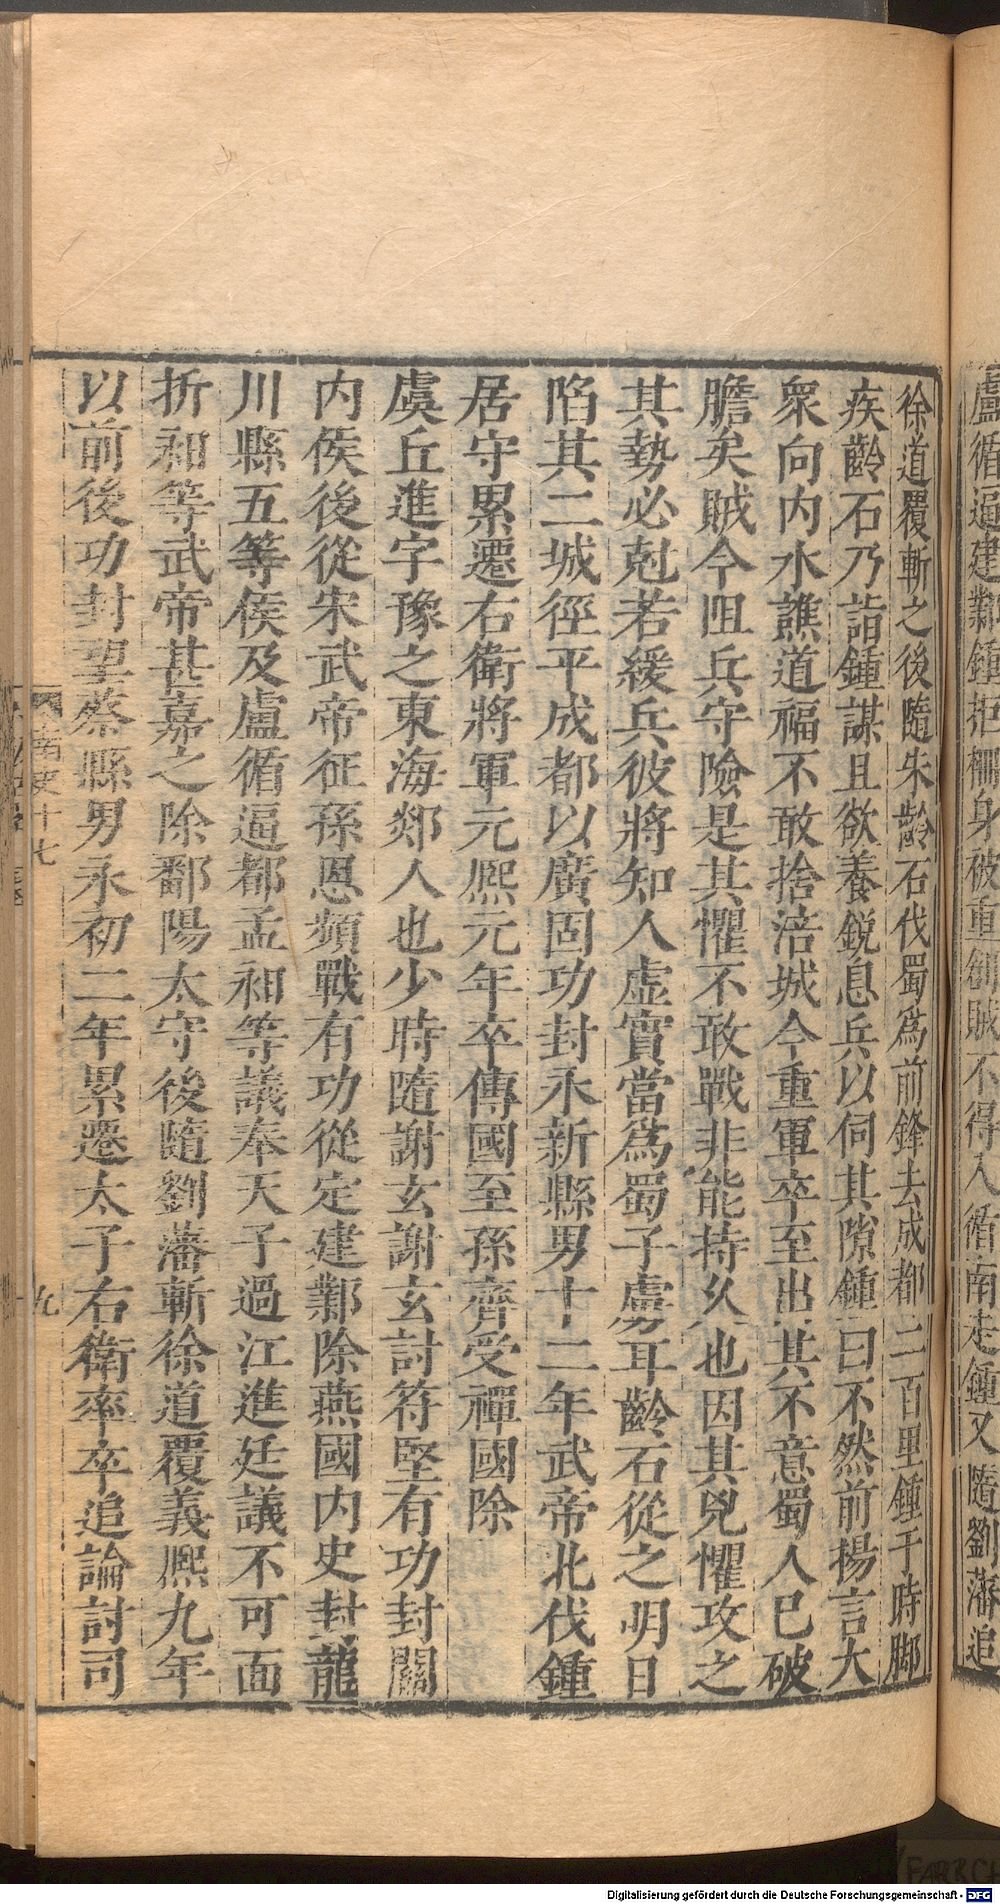 盧循逼建鄴鍾拒柵身破重創賊不得入循南走鍾又隨劉藩追
徐道覆斬之後隨朱齡石伐蜀爲前鋒去成都二百里鍾于時脚
疾齡石乃詣鍾謀且欲養銳息兵以伺其隙鍾曰不然前揚言大
衆向内水譙道福不敢捨涪城今重軍卒至出其不意蜀人已破
膽矣賊今阻兵守險是其懼不敢戰非能持久也因其兇懼攻之
其勢必尅若緩兵彼將知人虛實當爲蜀子虜耳齡石從之明日
陷其二城徑平成都以廣固功封永新縣男十二年武帝北伐鍾
居守累遷右衛將軍元熙元年卒傳國至孫齊受禪國除
虞丘進字豫之東海郯人也少時隨謝玄謝玄討符堅有功封關
内侯後從宋武帝征孫恩頻戰有功從定建鄴除燕國内史封龍
川縣五等侯及盧循逼都孟昶等議奉天子過江進廷議不可面
折昶等武帝甚嘉之除鄱陽太守後隨劉藩斬徐道覆義熙九年
以前後功封望蔡縣男永初二年累遷太子右衛率卒追論討司
南史十七
九
Digitalisierung gefördert durch die Deutsche Forschungsgemeinschaft - DFG